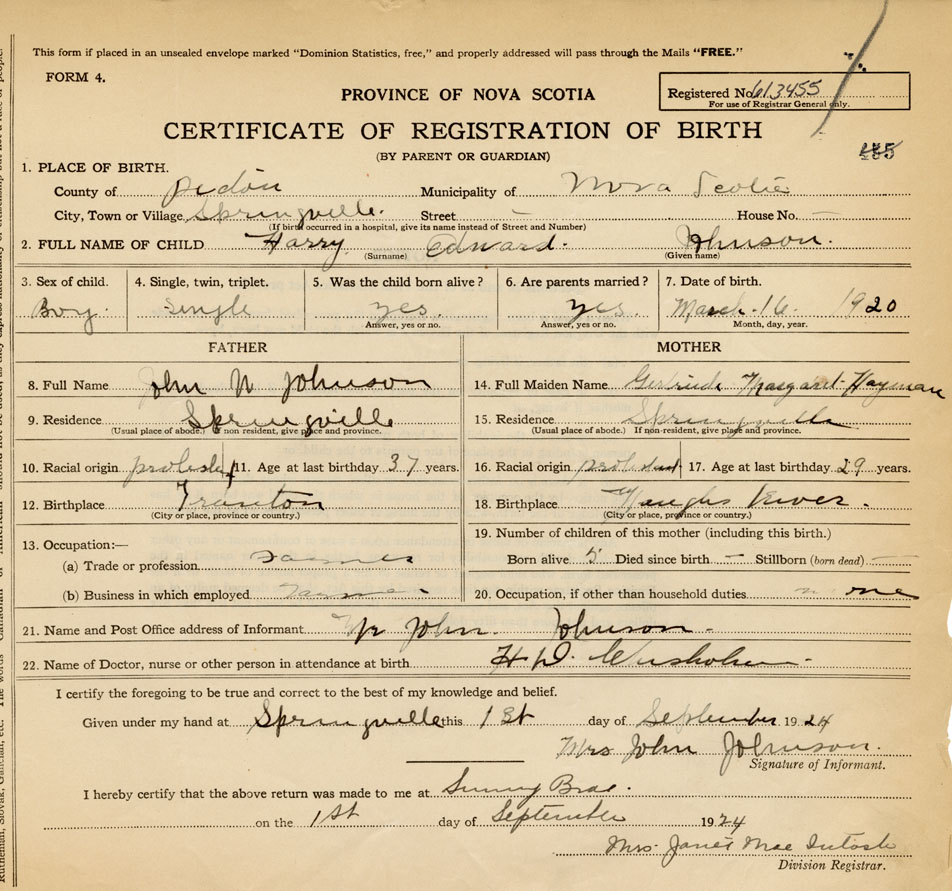 This form if placed in an unsealed envelope marked "Dominion Statistics, free," and properly addressed will pass through the Mails "FREE."
FORM 4.
PROVINCE OF NOVA SCOTIA
Registered No. 613455
For use of Registrar General only.
CERTIFICATE OF REGISTRATION OF BIRTH
(BY PARENT OR GUARDIAN)
1. PLACE OF BIRTH.
County of Municipality of Nova Scotia
City, Town or Village Springville. Street — House No. —
(If birth occurred in a hospital, give its name instead of Street and Number)
2. FULL NAME OF CHILD Harry Edward. Johnson.
(Surname) (Given name)
3. Sex of child. 4. Single, twin, triplet. 5. Was the child born alive? 6. Are parents married? 7. Date of birth.
Boy. Single yes yes. March 16 1920
Answer, yes or no. Answer, yes or no. Month, day, year.
FATHER MOTHER
8. Full Name John W Johnson 14. Full Maiden Name Gertrude Margaret Hayman
9. Residence Springville 15. Residence Springville
(Usual place of abode.) If non resident, give place and province. (Usual place of abode.) If non-resident, give place and province.
10. Racial origin 11. Age at last birthday 37 years. 16. Racial origin 17. Age at last birthday 29 years.
12. Birthplace 18. Birthplace River.
(City or place, province or country.) (City or place, province or country.)
13. Occupation:— 19. Number of children of this mother (including this birth.)
(a) Trade or profession Farmer Born alive 5 Died since birth — Stillborn (born dead) —
(b) Business in which employed 20. Occupation, if other than household duties none
21. Name and Post Office address of Informant Mr John. Johnson.
22. Name of Doctor, nurse or other person in attendance at birth
I certify the foregoing to be true and correct to the best of my knowledge and belief.
Given under my hand at Springville this 1st day of September 1924
Mrs John Johnson.
Signature of Informant.
I hereby certify that the above return was made to me at Sunny Brae.
on the 1st day of September 1924
Mrs. Janet Mac Intosh
Division Registrar.